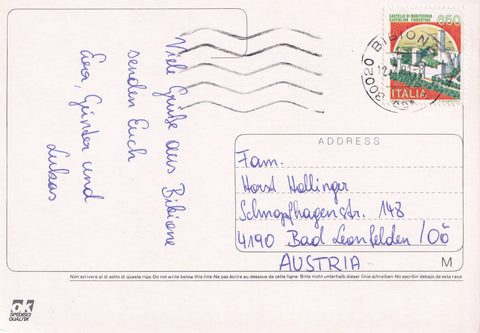 Viele Grüße aus Bibione
senden Euch
Eva, Günter und
Lukas
CASTELLO DI MONTECCHIO
CASTIGLION FIORENTINO
650
ITALIA
30020 BIBIONE
ADDRESS
Fam.
Horst Hollinger
Schnopfhagenstr. 148
4190 Bad Leonfelden /OÖ
AUSTRIA
M
Non scrivere al di sotto di questa riga · Do not write below this line · Ne pas écrire au dessous de cette ligne · Bitte nicht unterhalb dieser linie schreiben · No escribir debajo de esta raya
ok
SPEDISCI
QUALITÀ